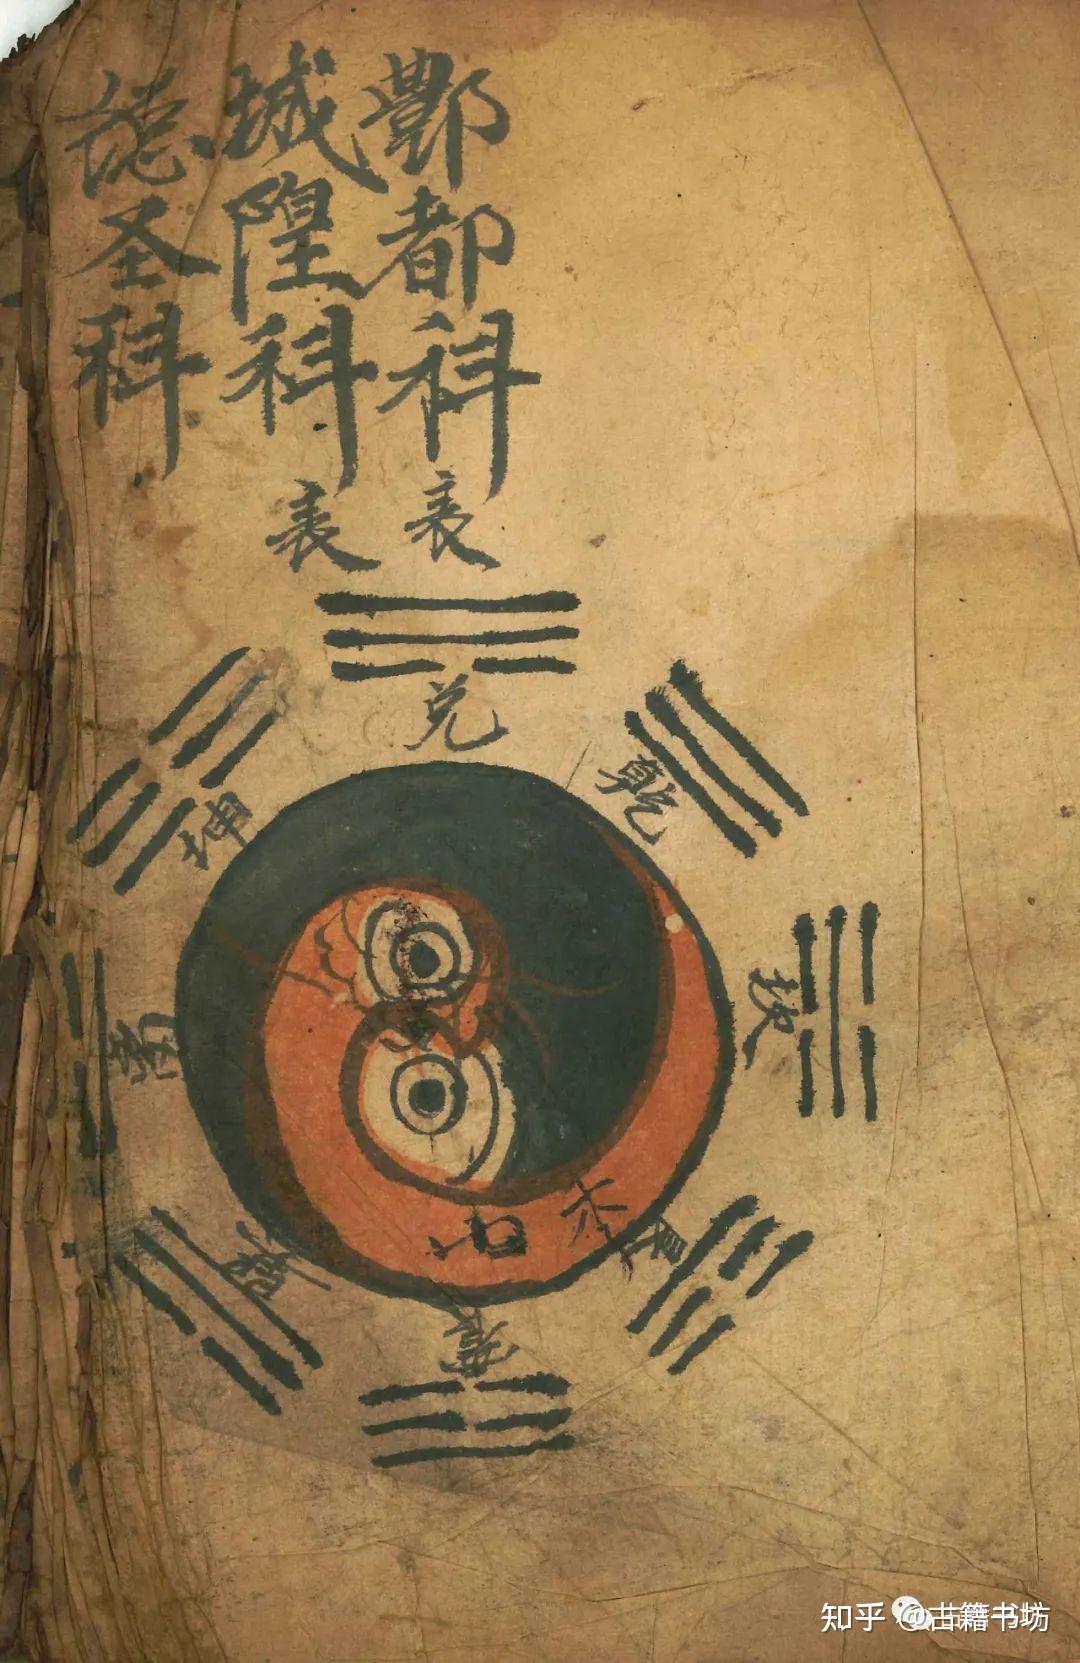 酆都科表
城隍科表
圣科
兑
乾
坎
艮
震
巽
离
坤
知乎 @古籍书坊